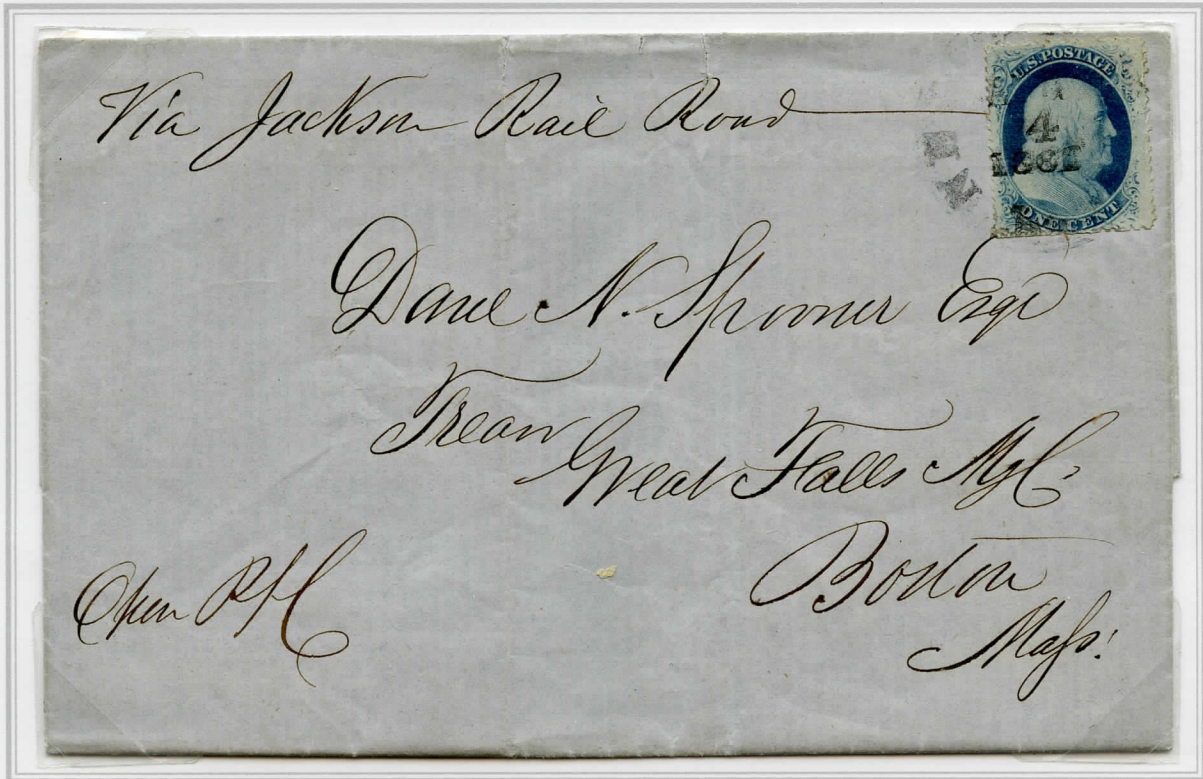 Via Jackson Rail Road
U.S. POSTAGE
4
1861
ONE CENT
Danl N. Spooner Esqr
Treasr
Great Falls Mfg C.
Boston
Mass.
Open P.H.C